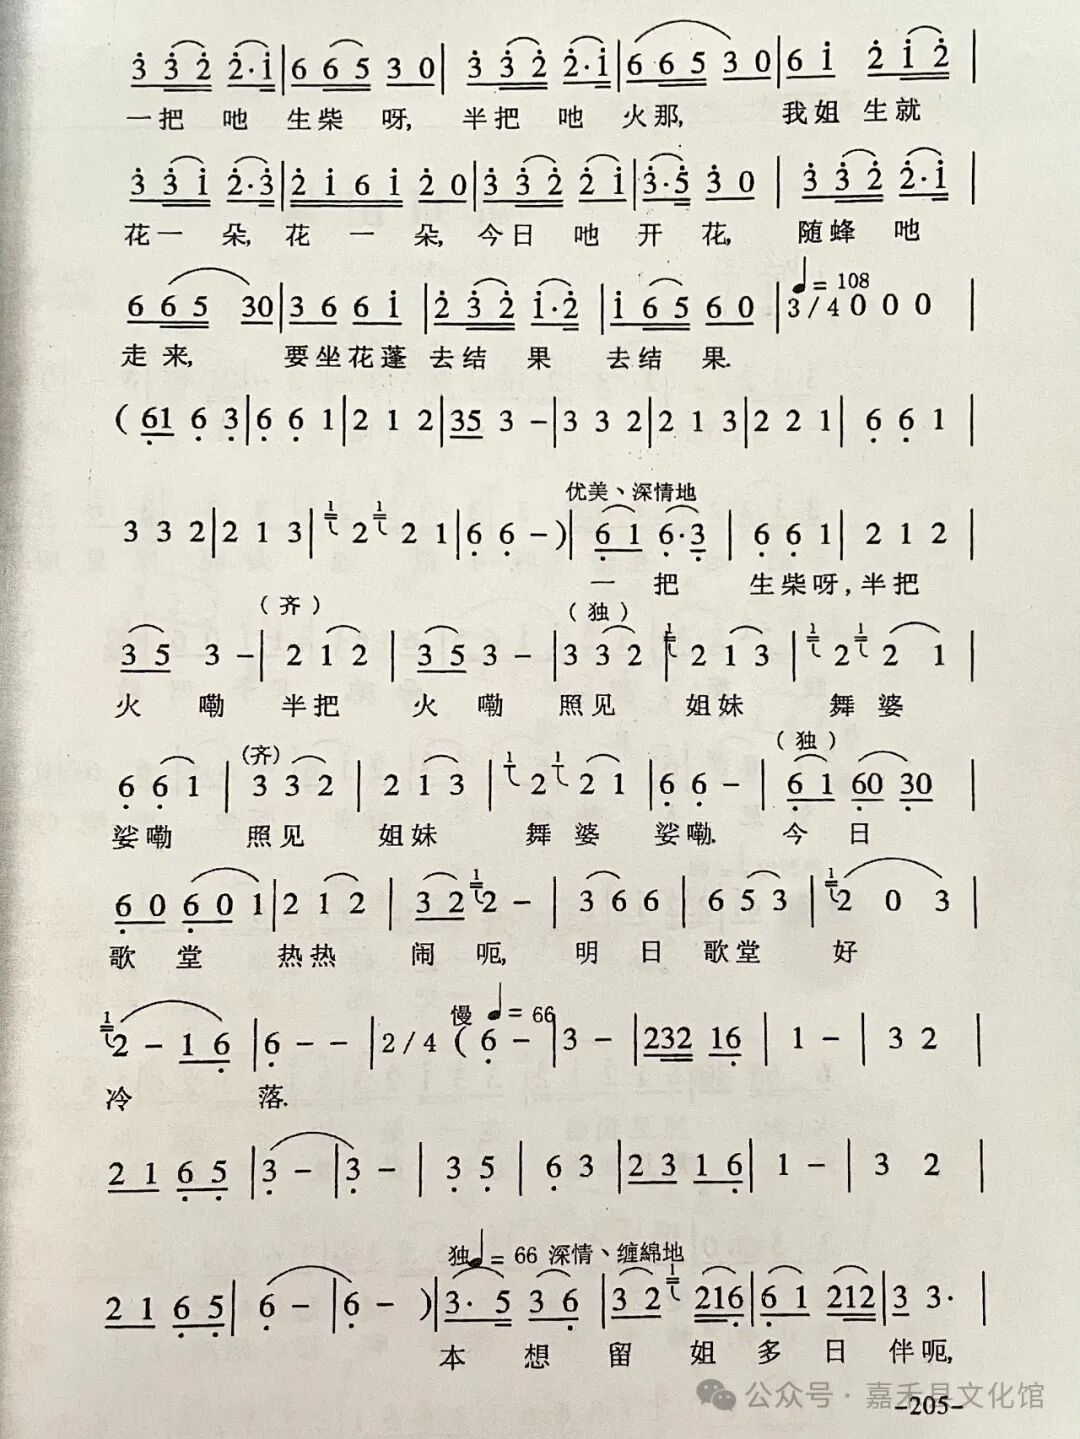 3 3 2 2·1|6 6 5 3 0|3 3 2 2·1|6 6 5 3 0|6 1 2 1 2|
一把 吔 生柴 呀, 半把 吔 火那, 我姐 生就
3 3 1 2·3|2 1 6 1 2 0|3 3 2 2 1|3·5 3 0|3 3 2 2·1|
花一 朵, 花 一 朵, 今日 吔 开 花, 随蜂 吔
♩= 108
6 6 5 3 0|3 6 6 1|2 3 2 1·2|1 6 5 6 0|3/4 0 0 0|
走来, 要坐花蓬 去结 果 去结 果.
(61 6 3|6 6 1|2 1 2|35 3 -|3 3 2|2 1 3|2 2 1|6 6 1|
优美、深情地
3 3 2|2 1 3|1 2 1 2 1|6 6 -)|6 1 6·3|6 6 1|2 1 2|
一 把 生柴呀, 半把
(齐) (独)
3 5 3 -|2 1 2|3 5 3 -|3 3 2|1 2 1 3|1 2 1 2 1|
火 嘞 半把 火 嘞 照见 姐妹 舞 婆
(齐) (独)
6 6 1|3 3 2|2 1 3|1 2 1 2 1|6 6 -|6 1 60 30|
娑嘞 照见 姐妹 舞 婆 娑嘞. 今 日
6 0 6 0 1|2 1 2|3 2 1 2 -|3 6 6|6 5 3|1 2 0 3|
歌 堂 热热 闹 呃, 明 日 歌堂 好
慢 ♩= 66
1 2 - 1 6|6 - -|2/4 (6 -|3 -|232 16|1 -|3 2|
冷 落.
2 1 6 5|3 -|3 -|3 5|6 3|2 3 1 6|1 -|3 2|
独♩= 66 深情、缠綿地
2 1 6 5|6 -|6 -)|3· 5 3 6|3 2 1 216|6 1 212|3 3·|
本 想 留 姐 多 日 伴呃,
公众号·嘉禾县文化馆
-205-